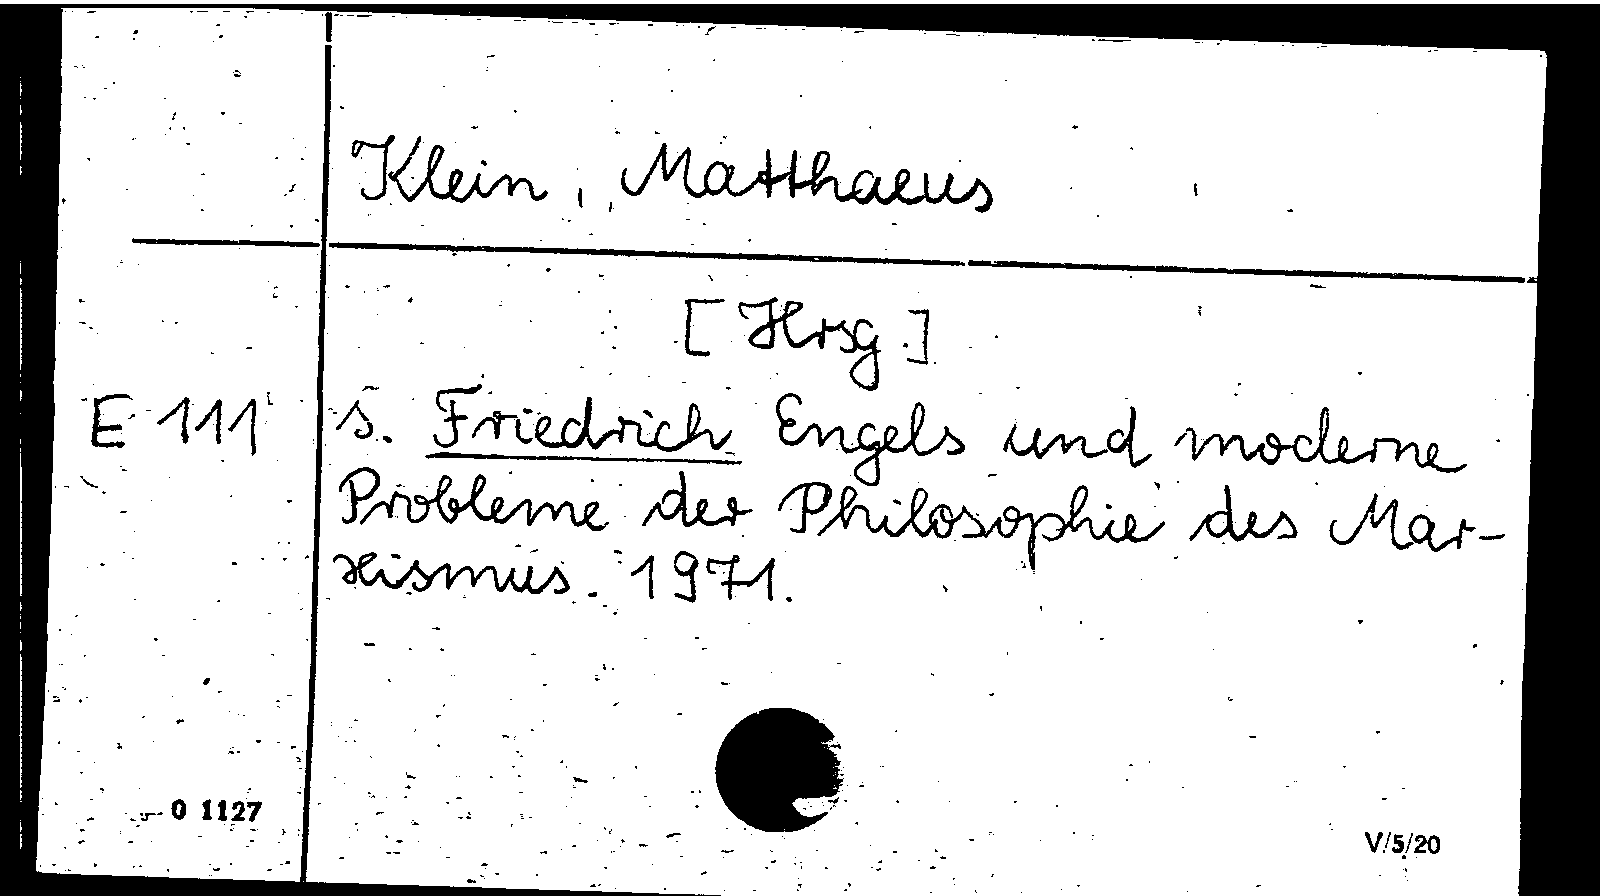 Klein, Matthaeus
[Hrsg.]
E 111 s. Friedrich Engels und moderne
Probleme der Philosophie des Mar-
xismus. 1971.
0 1127
V/5/20